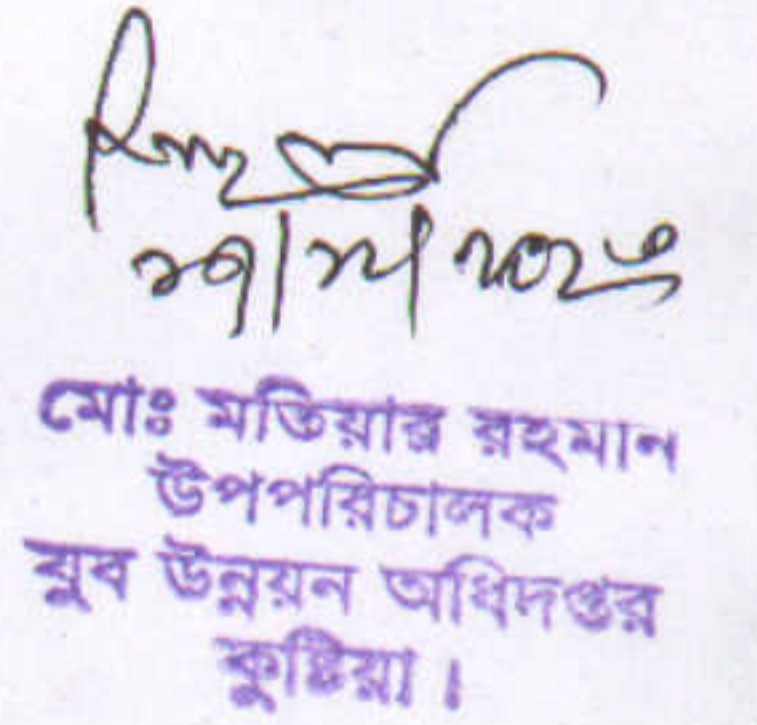 মোঃ মতিয়ার রহমান
উপপরিচালক
যুব উন্নয়ন অধিদপ্তর
কুষ্টিয়া।